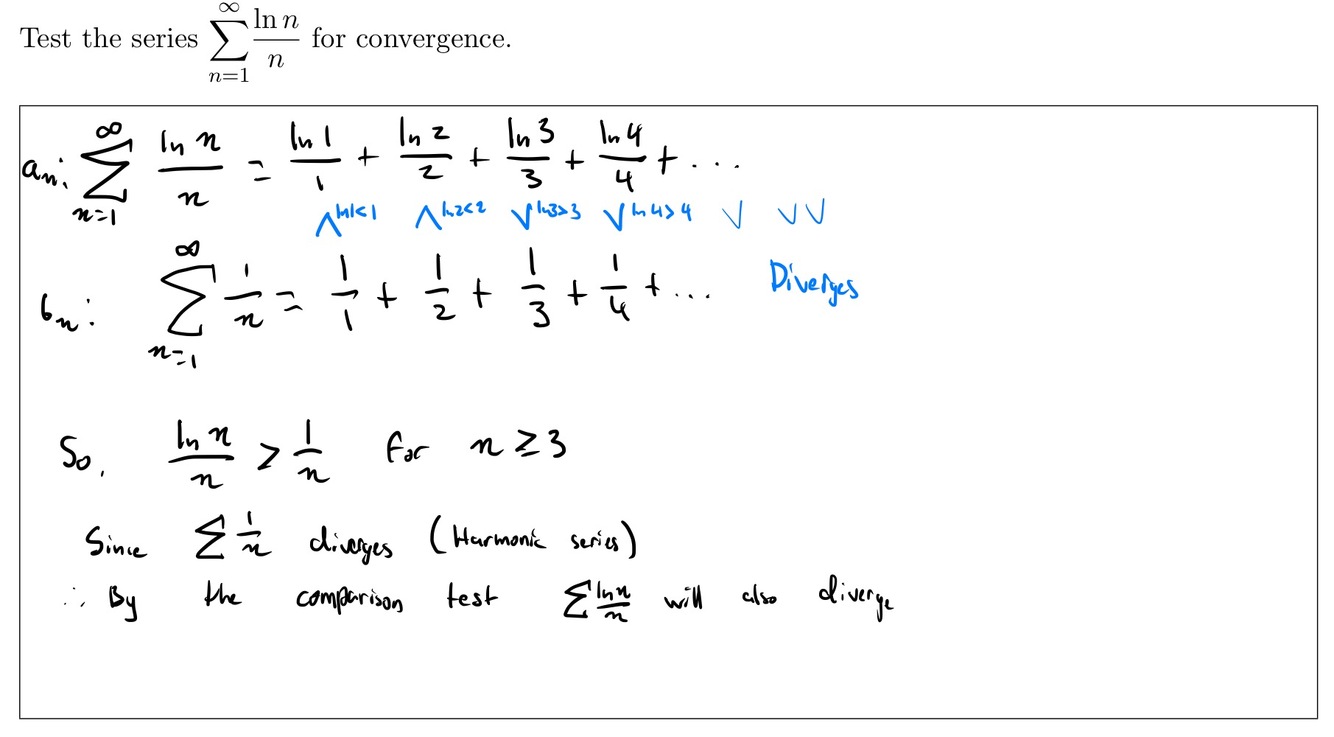 Test the series $\sum_{n=1}^{\infty} \frac{\ln n}{n}$ for convergence.
a_n: $\sum_{n=1}^{\infty} \frac{\ln n}{n} = \frac{\ln 1}{1} + \frac{\ln 2}{2} + \frac{\ln 3}{3} + \frac{\ln 4}{4} + \ldots$
∧ ln1<1 ∧ ln2<2 ∨ ln3>3 ∨ ln4>4 ∨ ∨∨
b_n: $\sum_{n=1}^{\infty} \frac{1}{n} = \frac{1}{1} + \frac{1}{2} + \frac{1}{3} + \frac{1}{4} + \ldots$ Diverges
So, $\frac{\ln n}{n} > \frac{1}{n}$ for $n \geq 3$
Since $\sum \frac{1}{n}$ diverges (Harmonic series)
∴ By the comparison test $\sum \frac{\ln n}{n}$ will also diverge